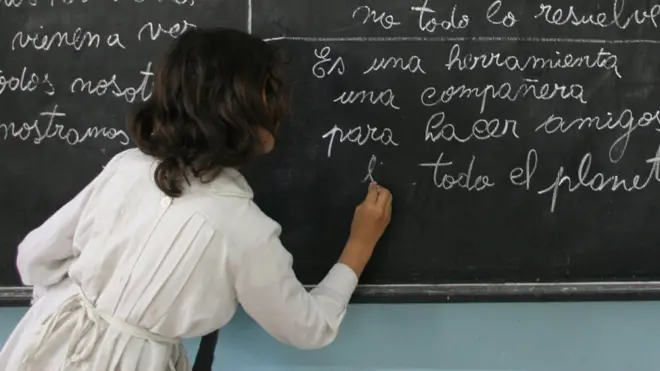 vienen a ver
todos nosot
mostramos
no todo lo resuelve
Es una herramienta
una compañera
para hacer amigos
todo el planeta